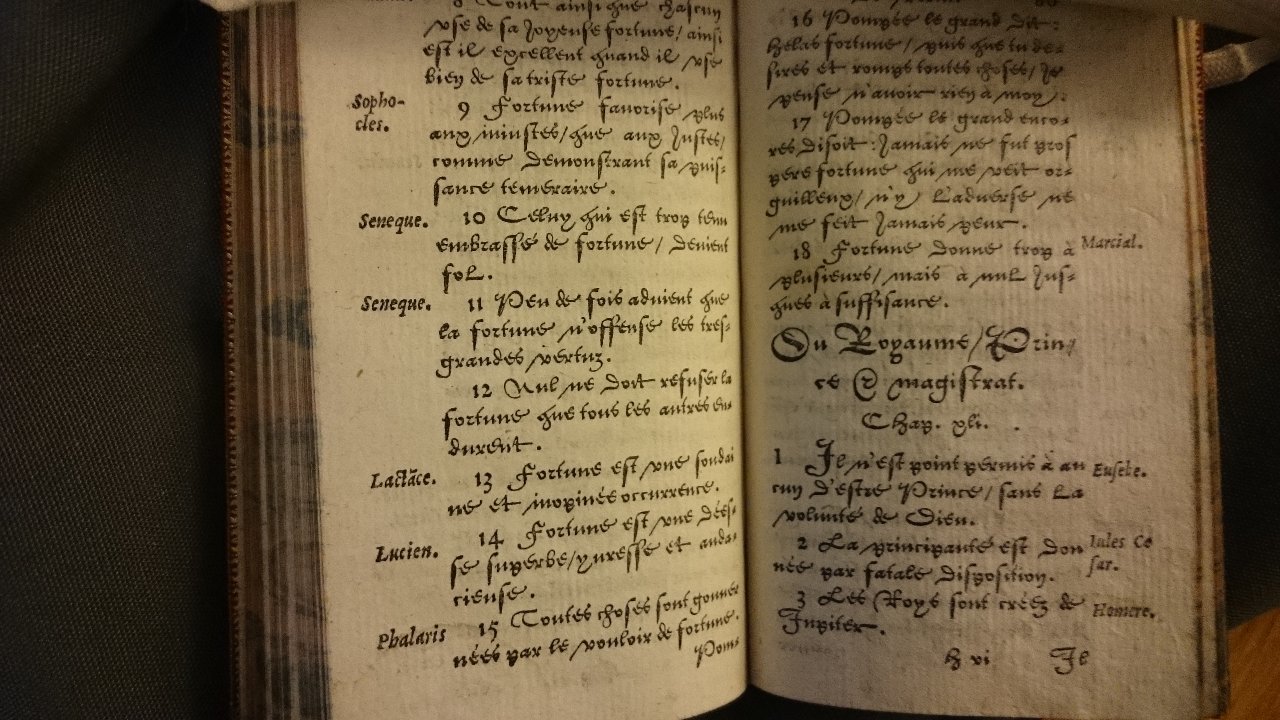 8 Tout ainsi que chascun
vse de sa joyeuse fortune/ ainsi
est il excellent quand il vse
bien de sa triste fortune.
Sopho-
cles.
9 Fortune fauorise plus
aux iniustes/que aux Justes/
comme demonstrant sa puis-
sance temeraire.
Seneque.
10 Celuy qui est trop tenu
embrassé de fortune/ deuient
fol.
Seneque.
11 Peu de fois aduient que
la fortune n'offense les tres-
grandes vertuz.
12 Nul ne doit refuser la
fortune que tous les autres en-
durent.
Lactãce.
13 Fortune est vne soudai
ne et inopinée occurrence.
Lucien.
14 Fortune est vne dées-
se superbe/yuresse et auda-
cieuse.
Phalaris
15 Toutes choses sont gouuer
nées par le vouloir de fortune.
Pom-
16 Pompée le grand dit:
helas fortune/ puis que tu de-
sires et romps toutes choses/ Je
pense n'auoir rien à moy.
17 Pompée le grand enco-
res disoit: Jamais ne fut pros
pere fortune qui me veit or-
guilleux/ n'y L'aduerse ne
me feit Jamais peur.
18 Fortune donne trop à
plusieurs/ mais à nul Jus-
ques à suffisance.
Martial.
Du Royaume/Prin/
ce & magistrat.
Chap. xli.
1 Il n'est point permis à au
cun d'estre Prince/ sans La
volunté de Dieu.
Eusebe.
2 La principauté est don
née par fatale disposition.
Iules Ce
sar.
3 Les Roys sont créez de
Jupiter.
Homere.
h vi Il